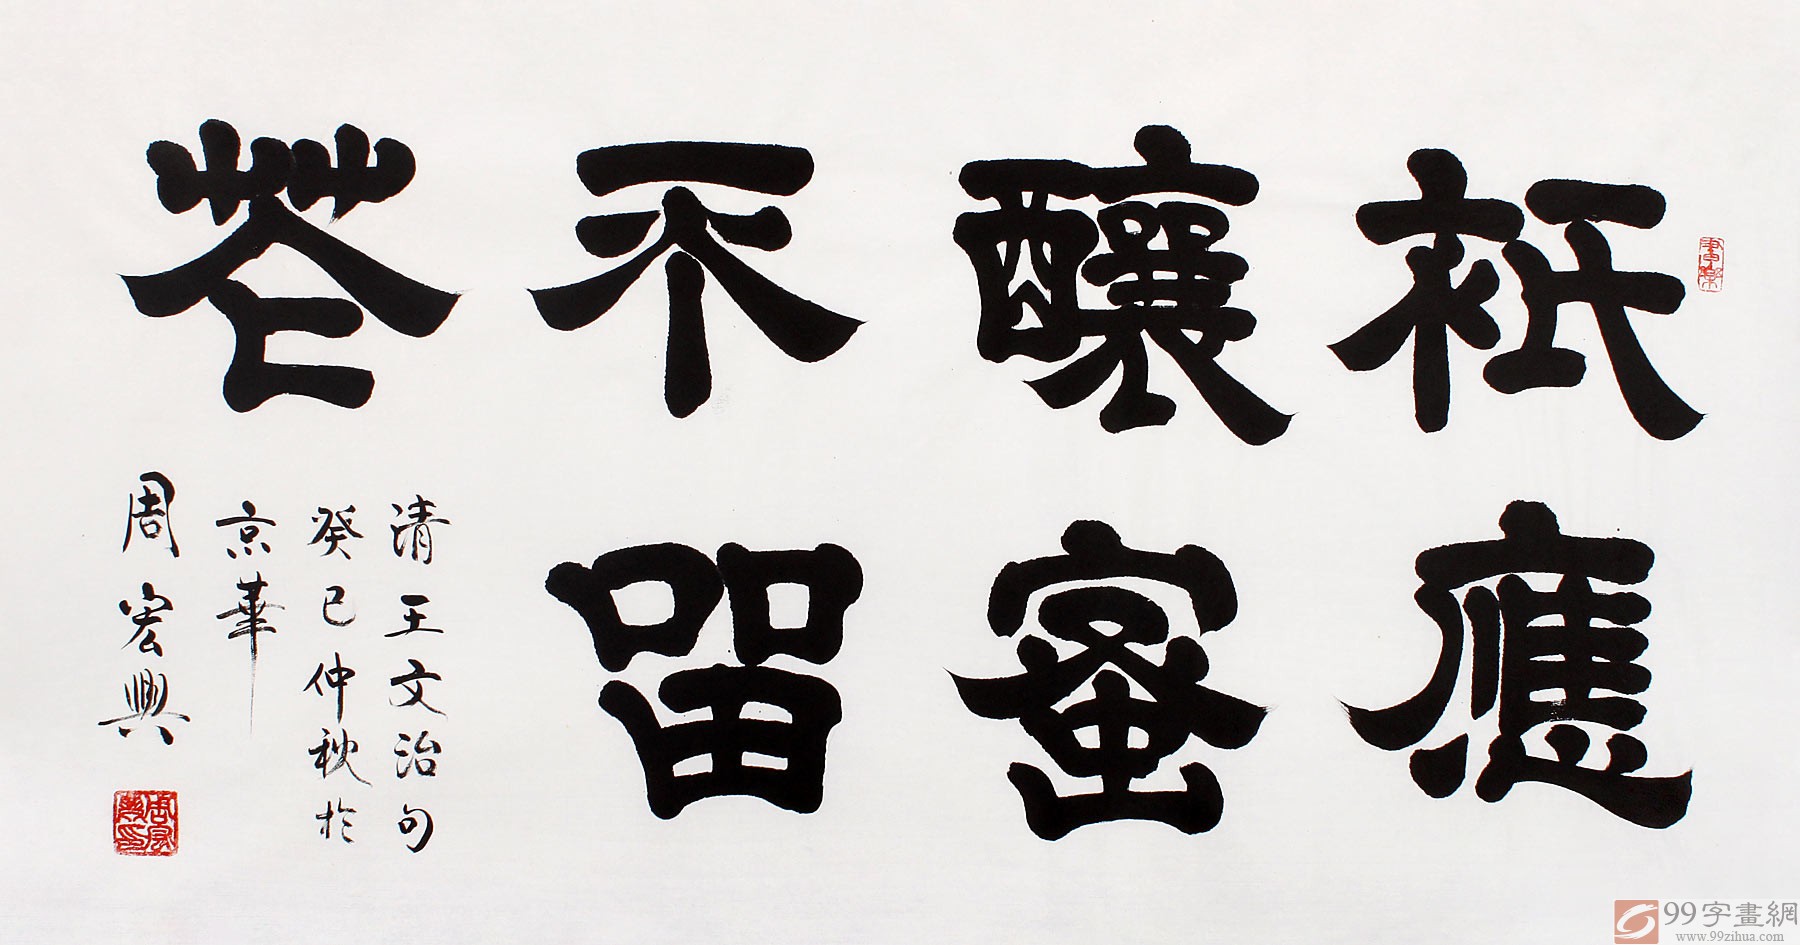 祇應
釀蜜
不留
花
清王文治句
癸巳仲秋於
京華
周宏興
99字畫網
www.99zihua.com